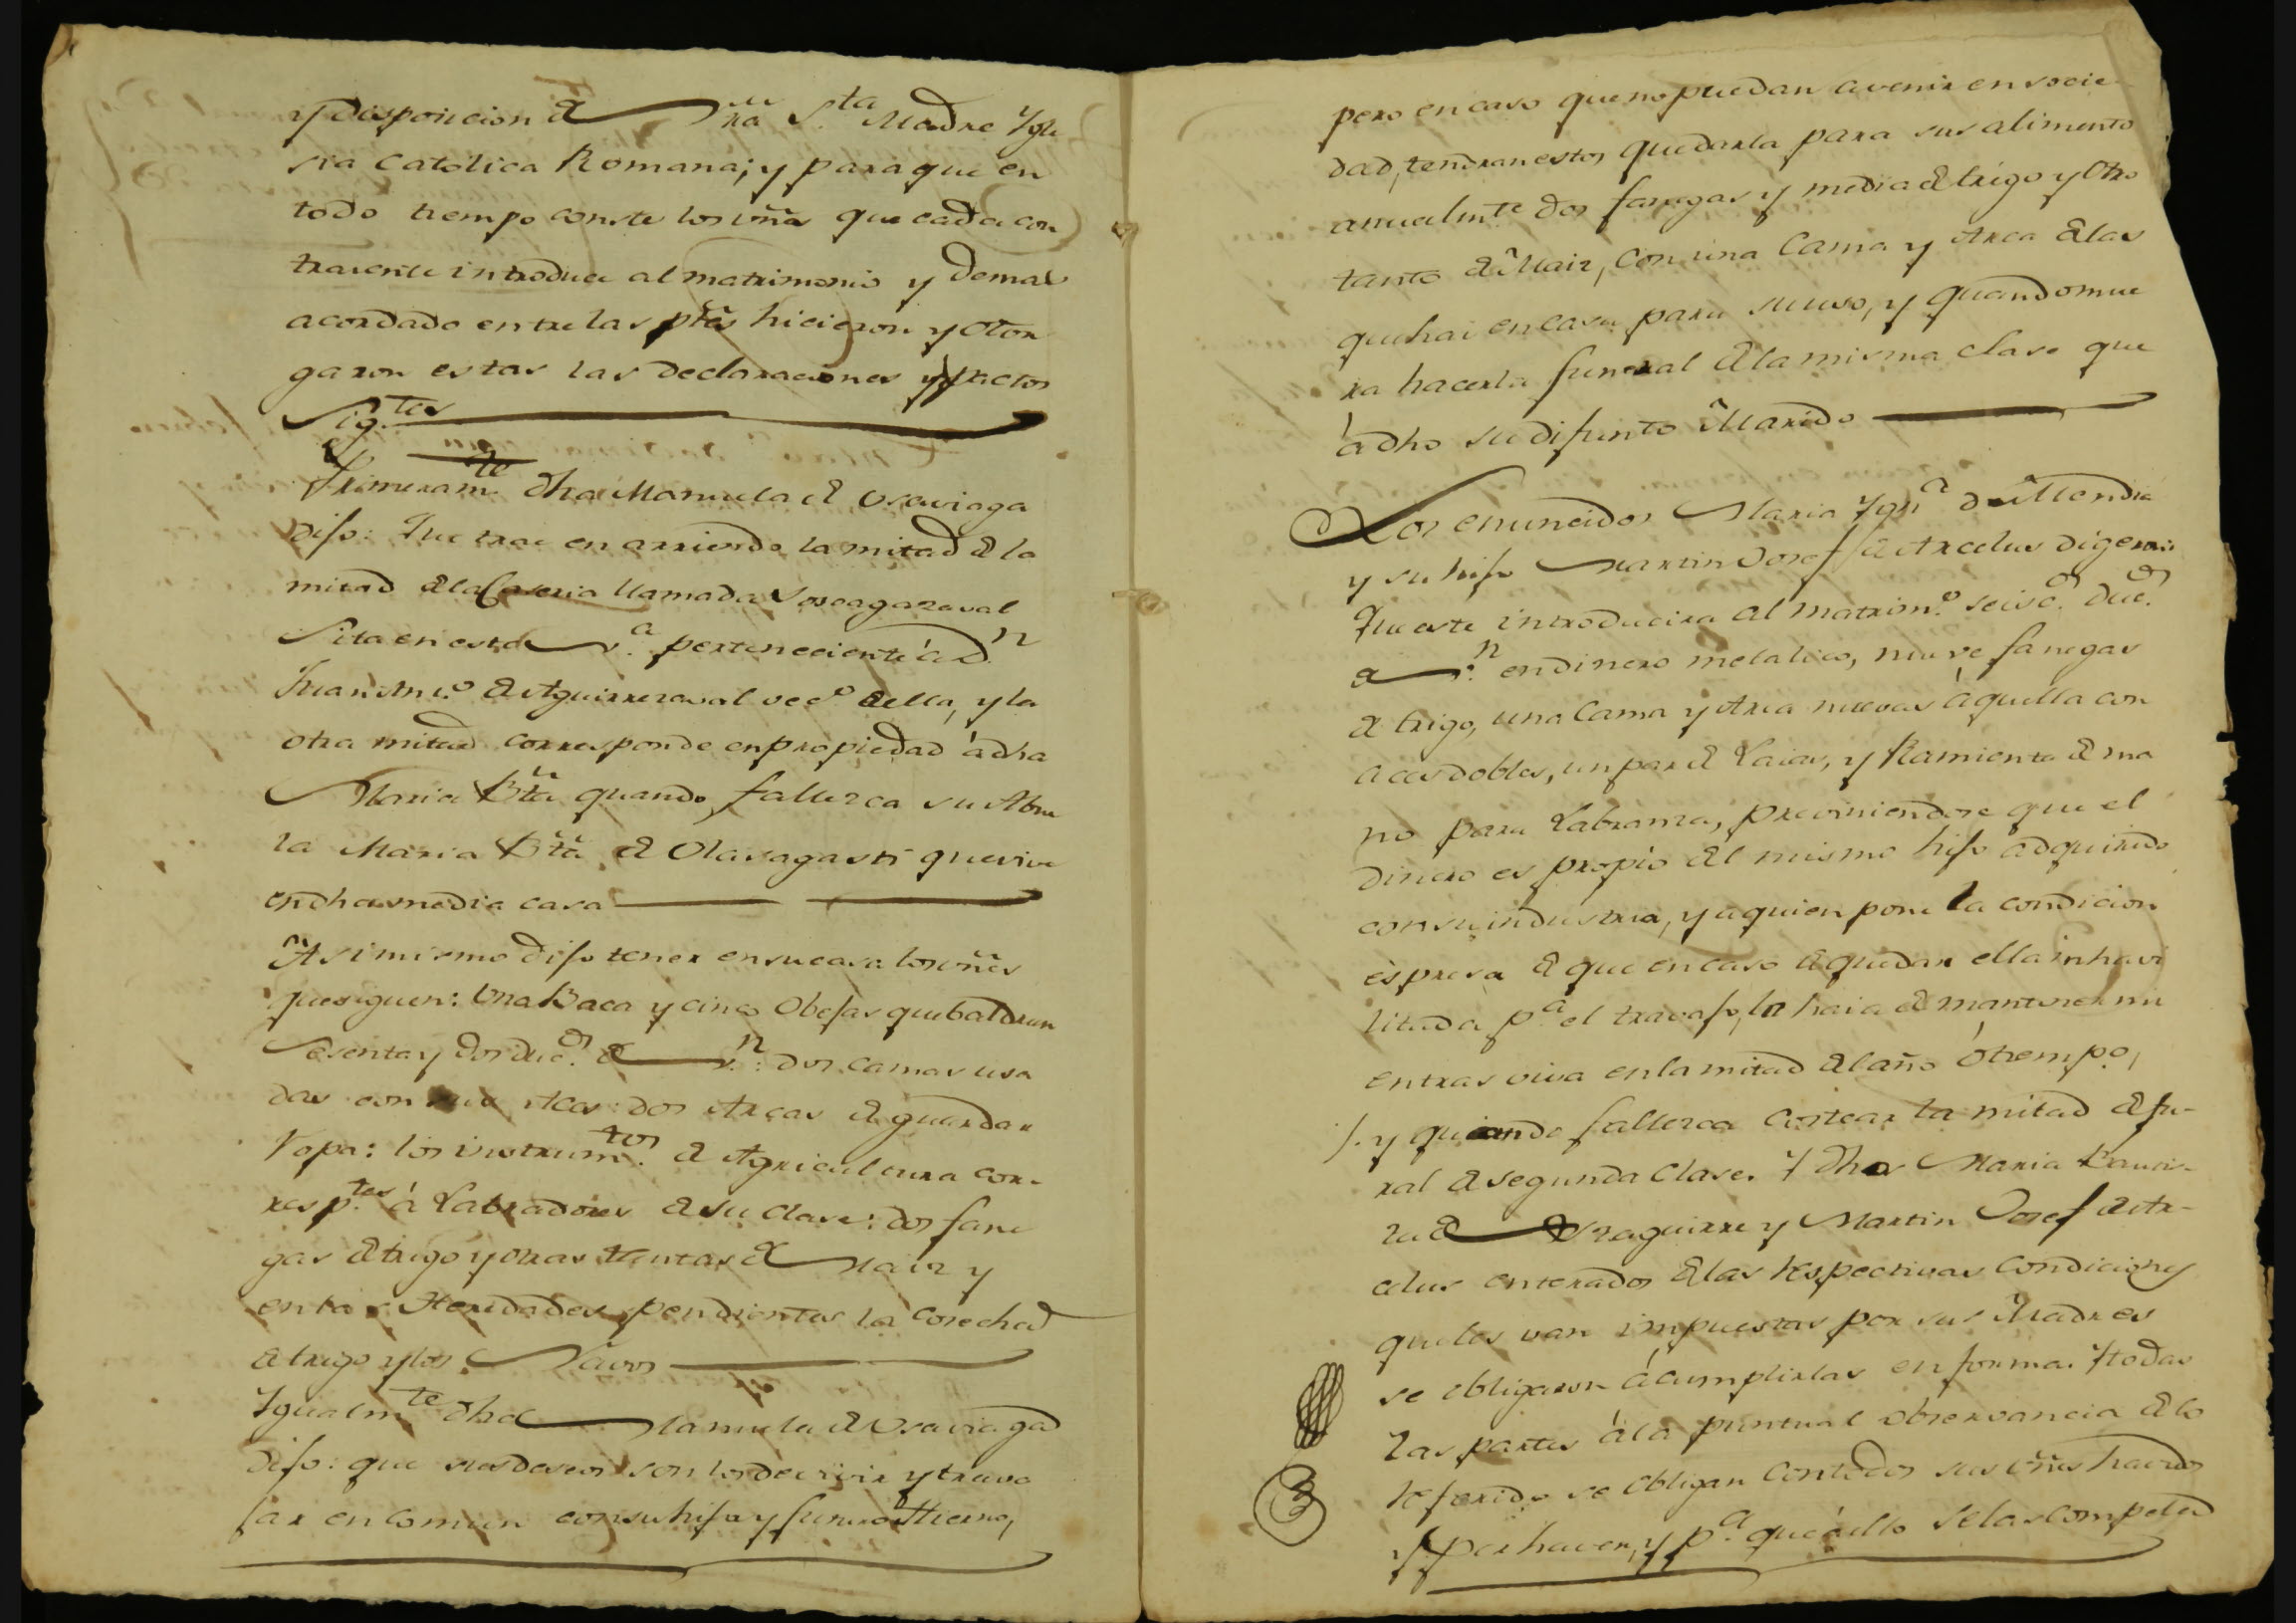 y disposicion de Nra Sta Madre Ygle
sia Catolica Romana; y para que en
todo tiempo conste los vñs que cada con
traiente introduce al matrimonio y demas
acordado entre las ptes hicieron y otor
garon estas las declaraciones y pactos
Sigtes
Primeramte dha Manuela de Vseviaga
dijo: Que trae en arriendo la mitad de la
mitad de la Caseria llamada
Sita en esta Va. perteneciente á Dn
Juan Anto de Aguirrezaval veco de ella, y la
otra mitad corresponde en propiedad á dha
Maria Bta quando fallezca su Abue
la Maria Bta de Olavagasti que vive
en dha media casa
Asimismo dijo tener en su casa los vñes
que siguen: Una Baca y cinco Obejas que baldran
Sesenta y dos ducs de Vn: dos camas usa
das con : dos Arcas de guardar
ropa: los instrumtos de Agricultura cor-
resptes á Labradores de su clase: dos fane
gas de trigo y otras tantas de Maiz y
en las Heredades pendientes la Cosecha
de trigo y los Navos
Ygualmte dha Manuela de Vseviaga
dijo: que sus deseos son los de vivir y trava
jar en comun con su hija y futuro Hierno,
pero en caso que no puedan avenir en socie
dad, tendran estos que darla para sus alimento
anualmte dos fanegas y media de trigo y otro
tanto de Maiz, con una Cama y Arca de las
que hai en casa para su uso, y quando mue
ra hacerla funeral de la misma clase que
á dho su difunto Marido
Los enunciados Maria Ygna de Mendia
y su hijo Martin Josef de Arcelus digeron
Que este introducira al matrimo. seis cs. ducs.
de Vn. en dinero metalico, nueve fanegas
de trigo, una Cama y Arca nuevas áquella con
aces dobles, un par de Laias, y Ramienta de ma
no para Labranza, previniendose que el
dinero es propio del mismo hijo adquirido
con su industria, y a quien pone la condicion
espresa de que en caso de quedar ella inhavi
litada pa. el travajo, la haia de mantener mi
entras viva en la mitad del año ó tiempo,
/. y quando fallezca Costear la mitad de fu-
ral de segunda Clase. Y dhos Maria Bautis-
ta de Yraguirre y Martin Josef de Ar-
celus enterados de las respectivas Condiciones
que les van impuestas por sus Madres
se obligaron á cumplirlas en forma. Y todas
las partes á la puntual observancia de lo
referido se obligan con todos sus vñes havidos
y por haver, y pa. que á ello se las compela